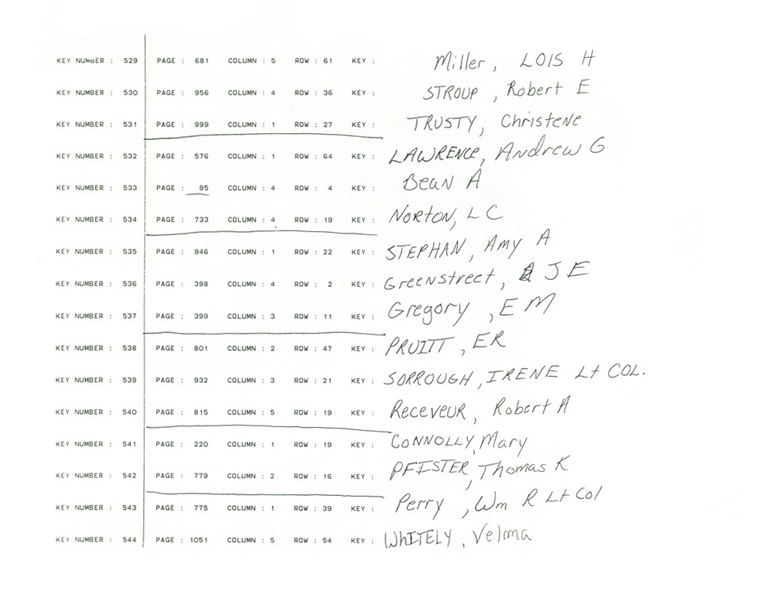 KEY NUMBER : 529 PAGE : 681 COLUMN : 5 ROW : 61 KEY : Miller, LOIS H
KEY NUMBER : 530 PAGE : 956 COLUMN : 4 ROW : 36 KEY : STROUP, Robert E
KEY NUMBER : 531 PAGE : 999 COLUMN : 1 ROW : 27 KEY : TRUSTY, Christene
KEY NUMBER : 532 PAGE : 576 COLUMN : 1 ROW : 64 KEY : LAWRENCE, Andrew G
KEY NUMBER : 533 PAGE : 95 COLUMN : 4 ROW : 4 KEY : Bean A
KEY NUMBER : 534 PAGE : 733 COLUMN : 4 ROW : 19 KEY : NORTON, LC
KEY NUMBER : 535 PAGE : 946 COLUMN : 1 ROW : 22 KEY : STEPHAN, Amy A
KEY NUMBER : 536 PAGE : 398 COLUMN : 4 ROW : 2 KEY : Greenstreet, J E
KEY NUMBER : 537 PAGE : 399 COLUMN : 3 ROW : 11 KEY : Gregory, E M
KEY NUMBER : 538 PAGE : 801 COLUMN : 2 ROW : 47 KEY : PRUITT, ER
KEY NUMBER : 539 PAGE : 932 COLUMN : 3 ROW : 21 KEY : SORROUGH, IRENE Lt COL.
KEY NUMBER : 540 PAGE : 815 COLUMN : 5 ROW : 19 KEY : Receveur, Robert A
KEY NUMBER : 541 PAGE : 220 COLUMN : 1 ROW : 19 KEY : CONNOLLY, Mary
KEY NUMBER : 542 PAGE : 779 COLUMN : 2 ROW : 16 KEY : PFISTER, Thomas K
KEY NUMBER : 543 PAGE : 775 COLUMN : 1 ROW : 39 KEY : Perry, Wm R Lt Col
KEY NUMBER : 544 PAGE : 1051 COLUMN : 5 ROW : 54 KEY : WhITELY, Velma